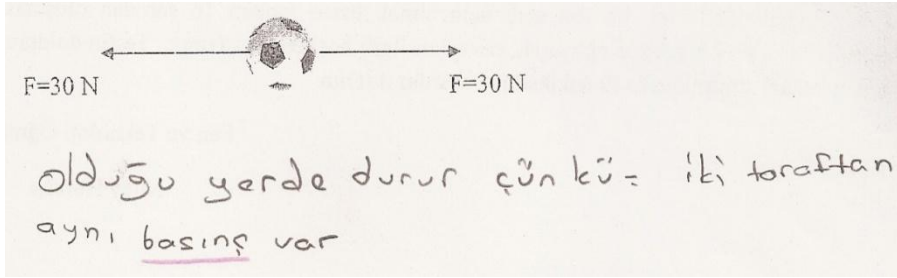 F=30 N F=30 N
olduğu yerde durur çünkü = iki taraftan
aynı basınç var